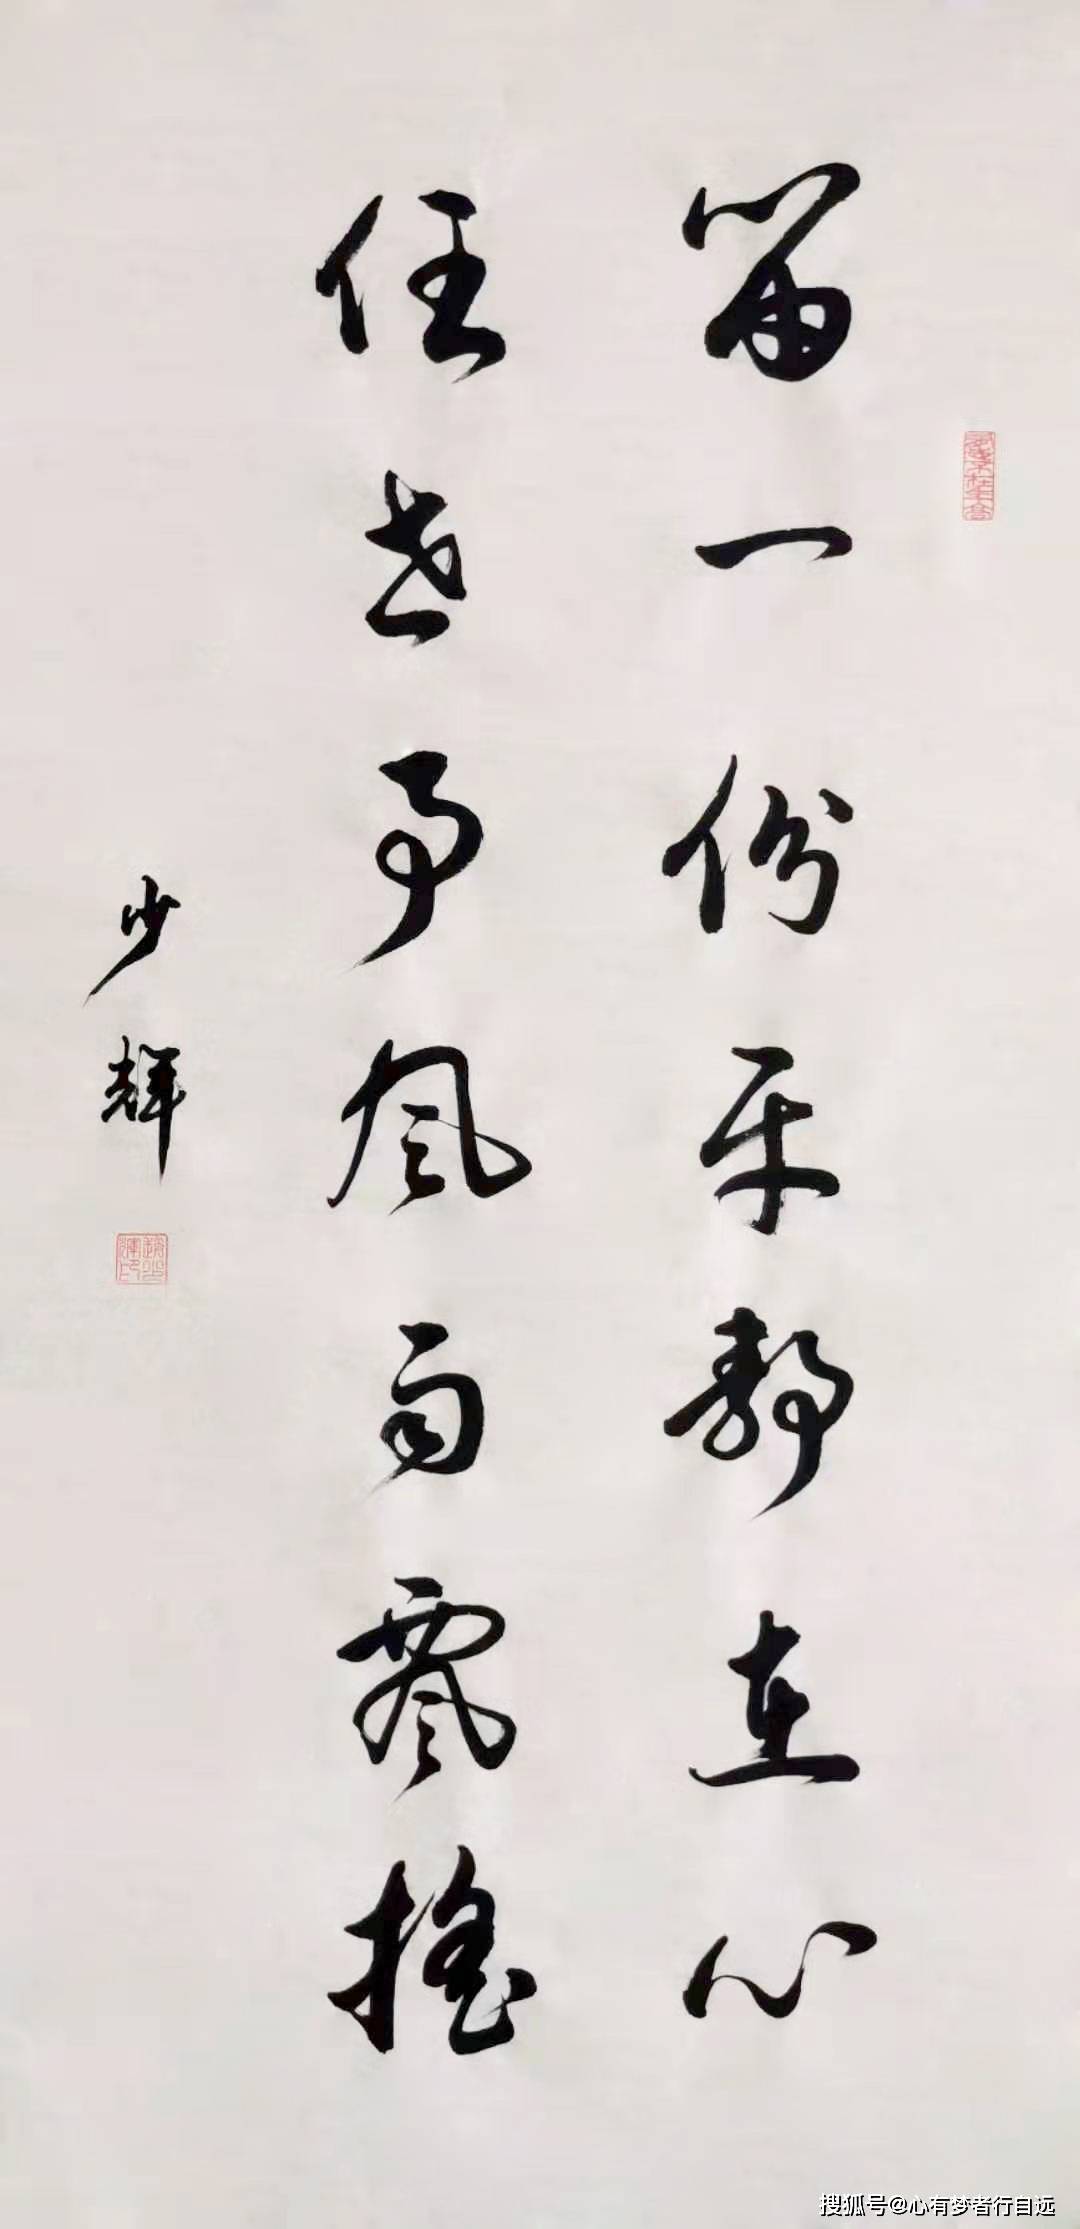 留一份平静在心
任世事风雨飘摇
少辉
搜狐号@心有梦者行自远